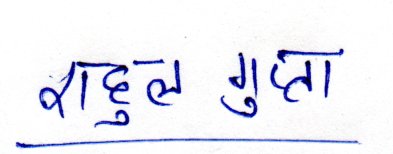 राहुल गुप्ता